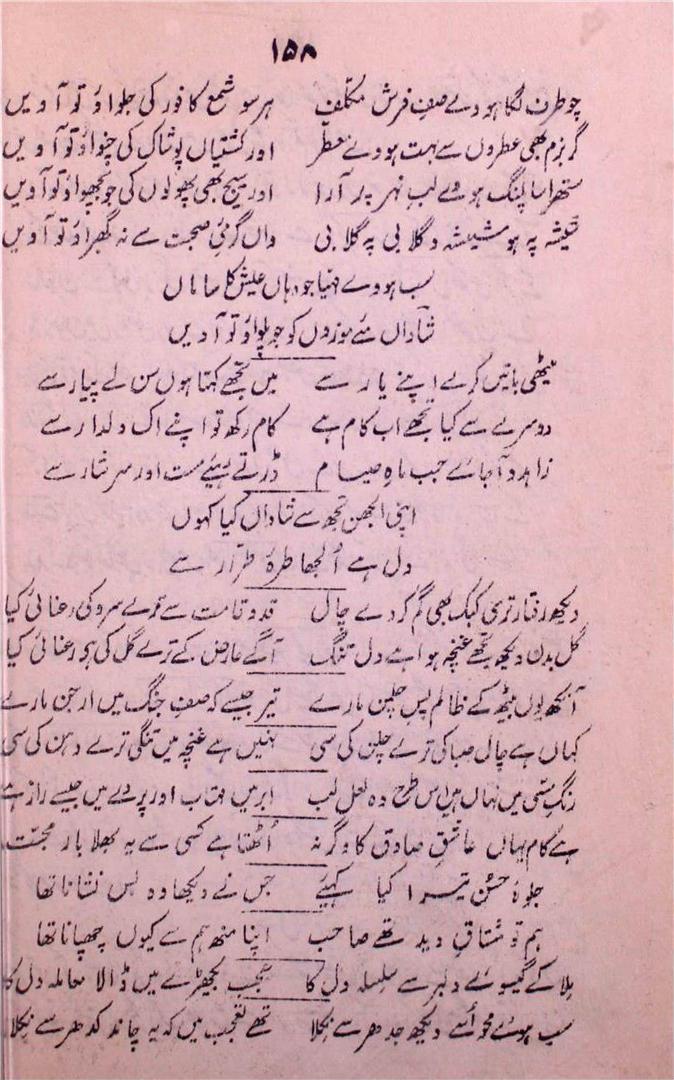 ۱۵۸
چوطرف لگا ہووے صفِ فرش مکلف ہر سو شمع کافور کی جلواؤ تو آویں
گر بزم بھی عطروں سے بہت ہووے معطر اور کشتیاں پوشاک کی چنواؤ تو آویں
ستھرا سا پلنگ ہووے لبِ نہر پر آرا اور سیج بھی پھولوں کی جو بچھواؤ تو آویں
شیشہ پہ ہو شیشہ و گلابی پہ گلابی واں گرمیِ صحبت سے نہ گھبراؤ تو آویں
سب ہووے مہیا جو وہاں عیش کا ساماں
شاداں مئے موزوں کو جو پلواؤ تو آویں
میٹھی باتیں کرلے اپنے یار سے میں تجھے کہتا ہوں سن لے پیار سے
دوسرے سے کیا تجھے اب کام ہے کام رکھ تو اپنے اک دلدار سے
زاہد و آجائے جب ماہِ صیام ڈرتے رہیئے مست اور سرشار سے
اپنی الجھن تجھ سے شاداں کیا کہوں
دل ہے اُلجھا طرۂ طرّار سے
دیکھ رفتار تری کبک بھی گم کردے چال قد و قامت سے ترے سرو کی رعنائی کیا
گل بدن دیکھ تجھے غنچہ ہوا ہے دل تنگ آگے عارض کے ترے گل کی ہے رعنائی کیا
آنکھ یوں بیٹھ کے ظالم پسِ چلمن مارے تیر جیسے کہ صفِ جنگ میں ارجن مارے
کہاں ہے چال صبا کی ترے چلن کی سی نہیں ہے غنچہ میں تنگی ترے دہن کی سی
رنگِ مسّی میں نہاں ہیں اس طرح وہ لعل لب ابر میں مہتاب اور پردے میں جیسے راز ہے
ہے کام یہاں عاشقِ صادق کا وگرنہ اُٹھتا ہے کسی سے یہ بھلا بارِ محبّت
جلوۂ حُسن تیرا کیا کہیئے جس نے دیکھا وہ بس نشانا تھا
ہم تو مشتاقِ دید تھے صاحب اپنا منھ ہم سے کیوں چھپانا تھا
بلا کے گیسوئے دلبر سے سلسلہ دل کا عجب بکھیڑے میں ڈالا معاملہ دل کا
سب ہوئے محو اُسے دیکھ جدھر سے نکلا تھے تعجب میں کہ یہ چاند کدھر سے نکلا